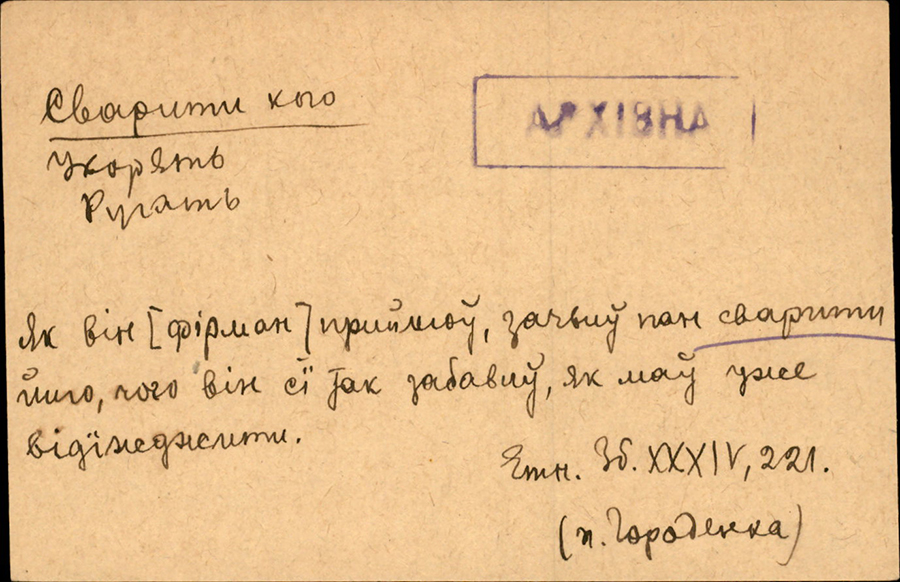 Сварити кого
АРХІВНА
Укорять
Ругать
Як він [фірман] прийшоў, зачьиў пан сварити
йиго, чого він сї так забавиў, як маў уже
відїжеджити.
Етн. Зб. XXXIV, 221.
(п. Городенка)